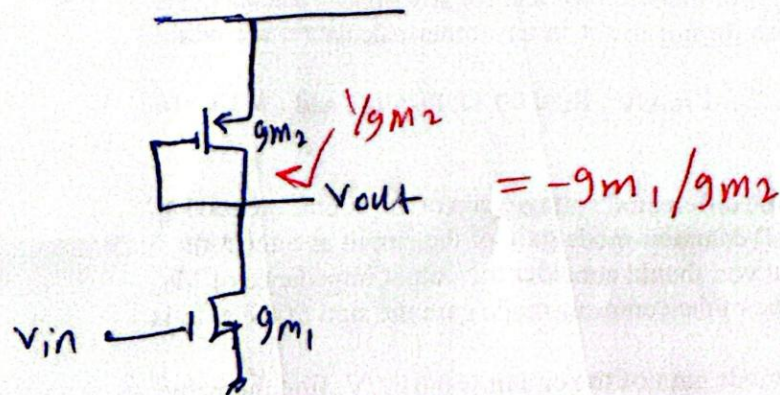 1/gm2
gm2
Vout
= -gm1/gm2
Vin
gm1